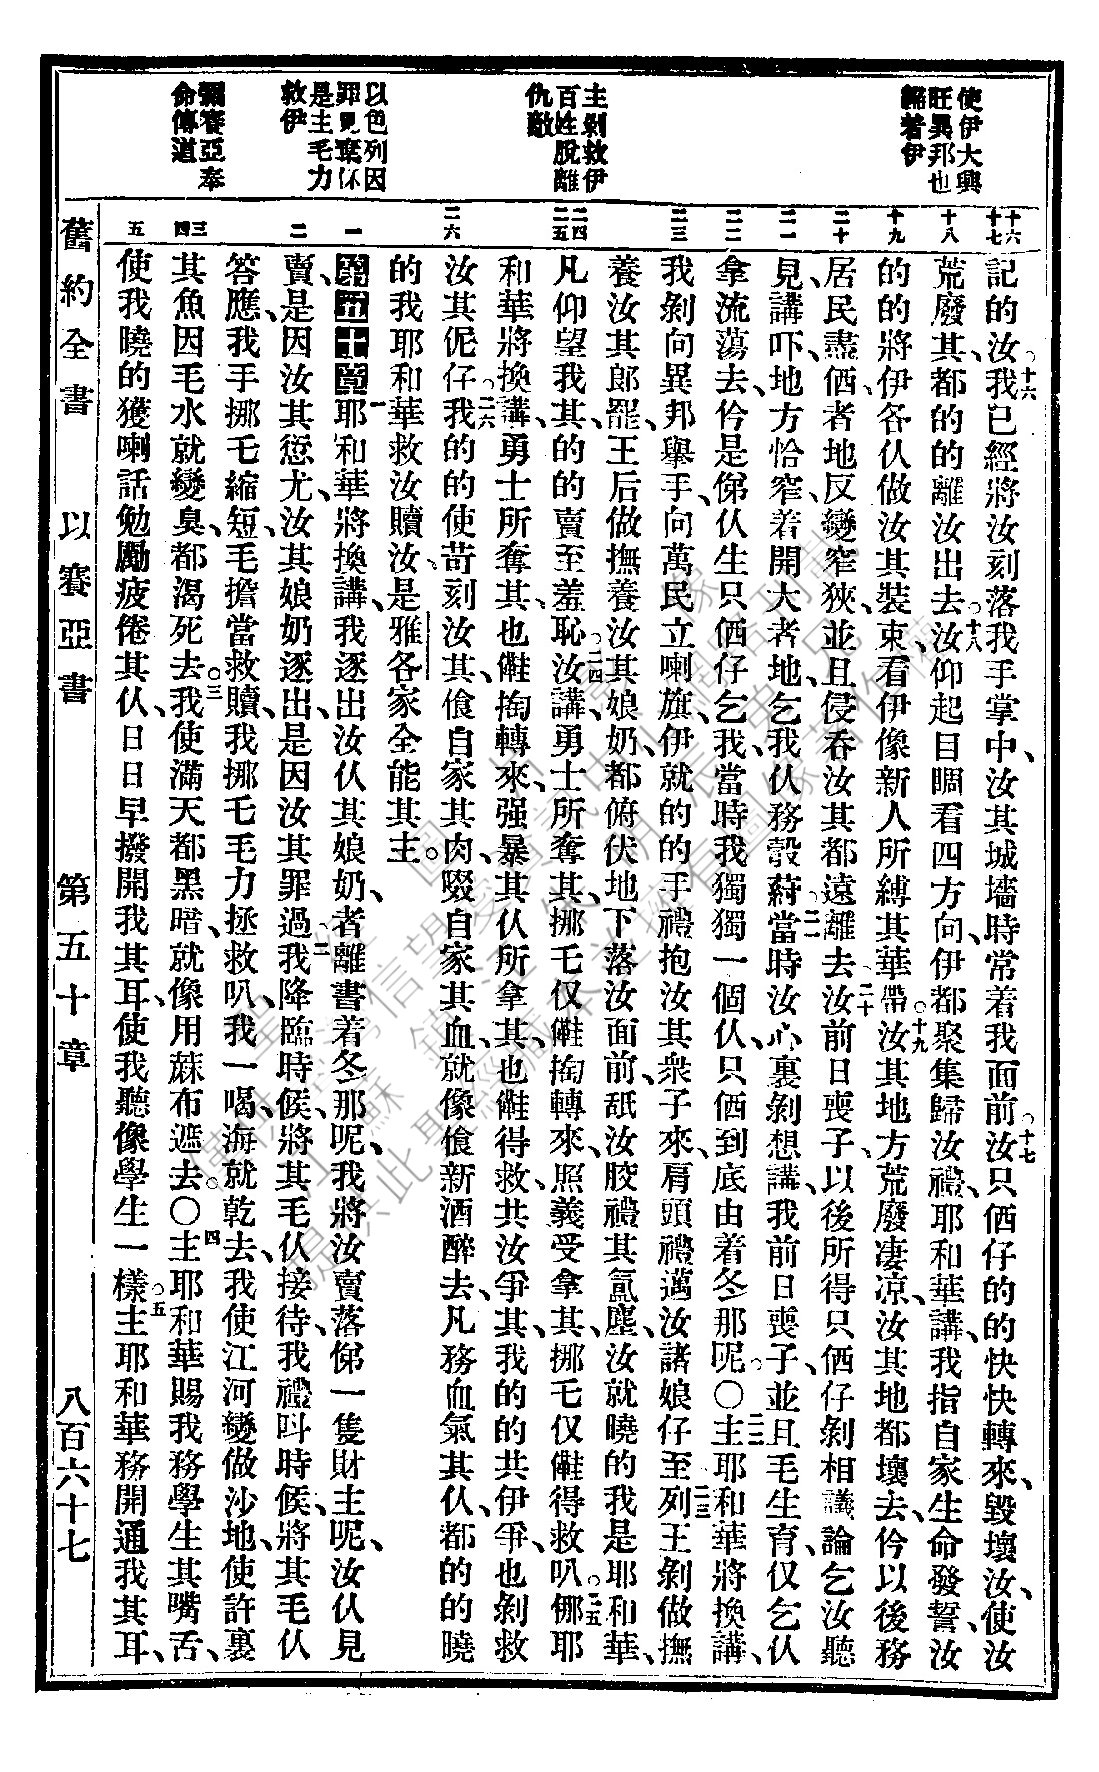 使伊大興
旺異邦也
歸著伊
主剝救伊
百姓脫離
仇敵
以色列因
罪見棄伓
是主毛力
救伊
彌賽亞奉
命傳道
十六 十七 十八 十九 二十 二一 二二 二三 二四 二五 二六 一 二 三 四 五
記的汝。十六我已經將汝刻落我手掌中、汝其城墻時常着我面前。十七汝只俩仔的的快快轉來、毀壞汝、使汝
荒廢其、都的的離汝出去。十八汝仰起目睭看四方向、伊都聚集歸汝禮、耶和華講、我指自家生命發誓、汝
的的將伊各仈做汝其裝束、看伊像新人所縛其華帶。十九汝其地方荒廢凄凉、汝其地都壞去、伶以後務
居民盡俩者地反變窄狹、並且侵吞汝其都遠離去。二十汝前日喪子、以後所得只俩仔剝相議論乞汝聽
見、講吓、地方恰窄、着開大者地、乞我仈務㝅蔚。二一當時汝心裏剝想講、我前日喪子、並且毛生育、仅乞仈
拿流蕩去、伶是俤仈生只俩仔乞我、當時我獨獨一個仈、只俩到底由着冬那呢。〇二二主耶和華將換講、
我剝向異邦舉手、向萬民立喇旗、伊就的的手禮抱汝其衆子來、肩頭禮邁汝諸娘仔至。二三列王剝做撫
養汝其郎罷、王后做撫養汝其娘奶、都俯伏地下落汝面前、舐汝骹禮其氤塵、汝就曉的我是耶和華、
凡仰望我其、的的賣至羞恥。二四汝講、勇士所奪其、挪乇仅雠掏轉來、照義受拿其、挪乇仅雠得救叭。二五𠆧耶
和華將換講、勇士所奪其、也雠掏轉來、强暴其仈所拿其、也雠得救、共汝爭其、我的的共伊爭、也剝救
汝其伲仔。二六我的的使苛刻汝其、飡自家其肉、啜自家其血、就像飡新酒醉去、凡務血氣其仈、都的的曉
的我耶和華救汝贖汝、是雅各家全能其主。
第五十章一耶和華將換講、我逐出汝仈其娘奶、者離書着冬那呢、我將汝賣落俤一隻財主呢、汝仈見
賣、是因汝其愆尤、汝其娘奶逐出、是因汝其罪過。二我降臨時候、將其毛仈接待、我禮叫時候、將其毛仈
答應、我手挪毛縮短、毛擔當救贖、我挪毛毛力拯救叭、我一喝、海就乾去、我使江河變做沙地、使許裏
其魚因毛水就變臭、都渴死去。三我使滿天都黑暗、就像用蔴布遮去。〇四主耶和華賜我務學生其嘴舌、
使我曉的獲喇話勉勵疲倦其仈、日日早撥開我其耳、使我聽像學生一樣。五主耶和華務開通我其耳、
舊約全書 以賽亞書 第五十章 八百六十七